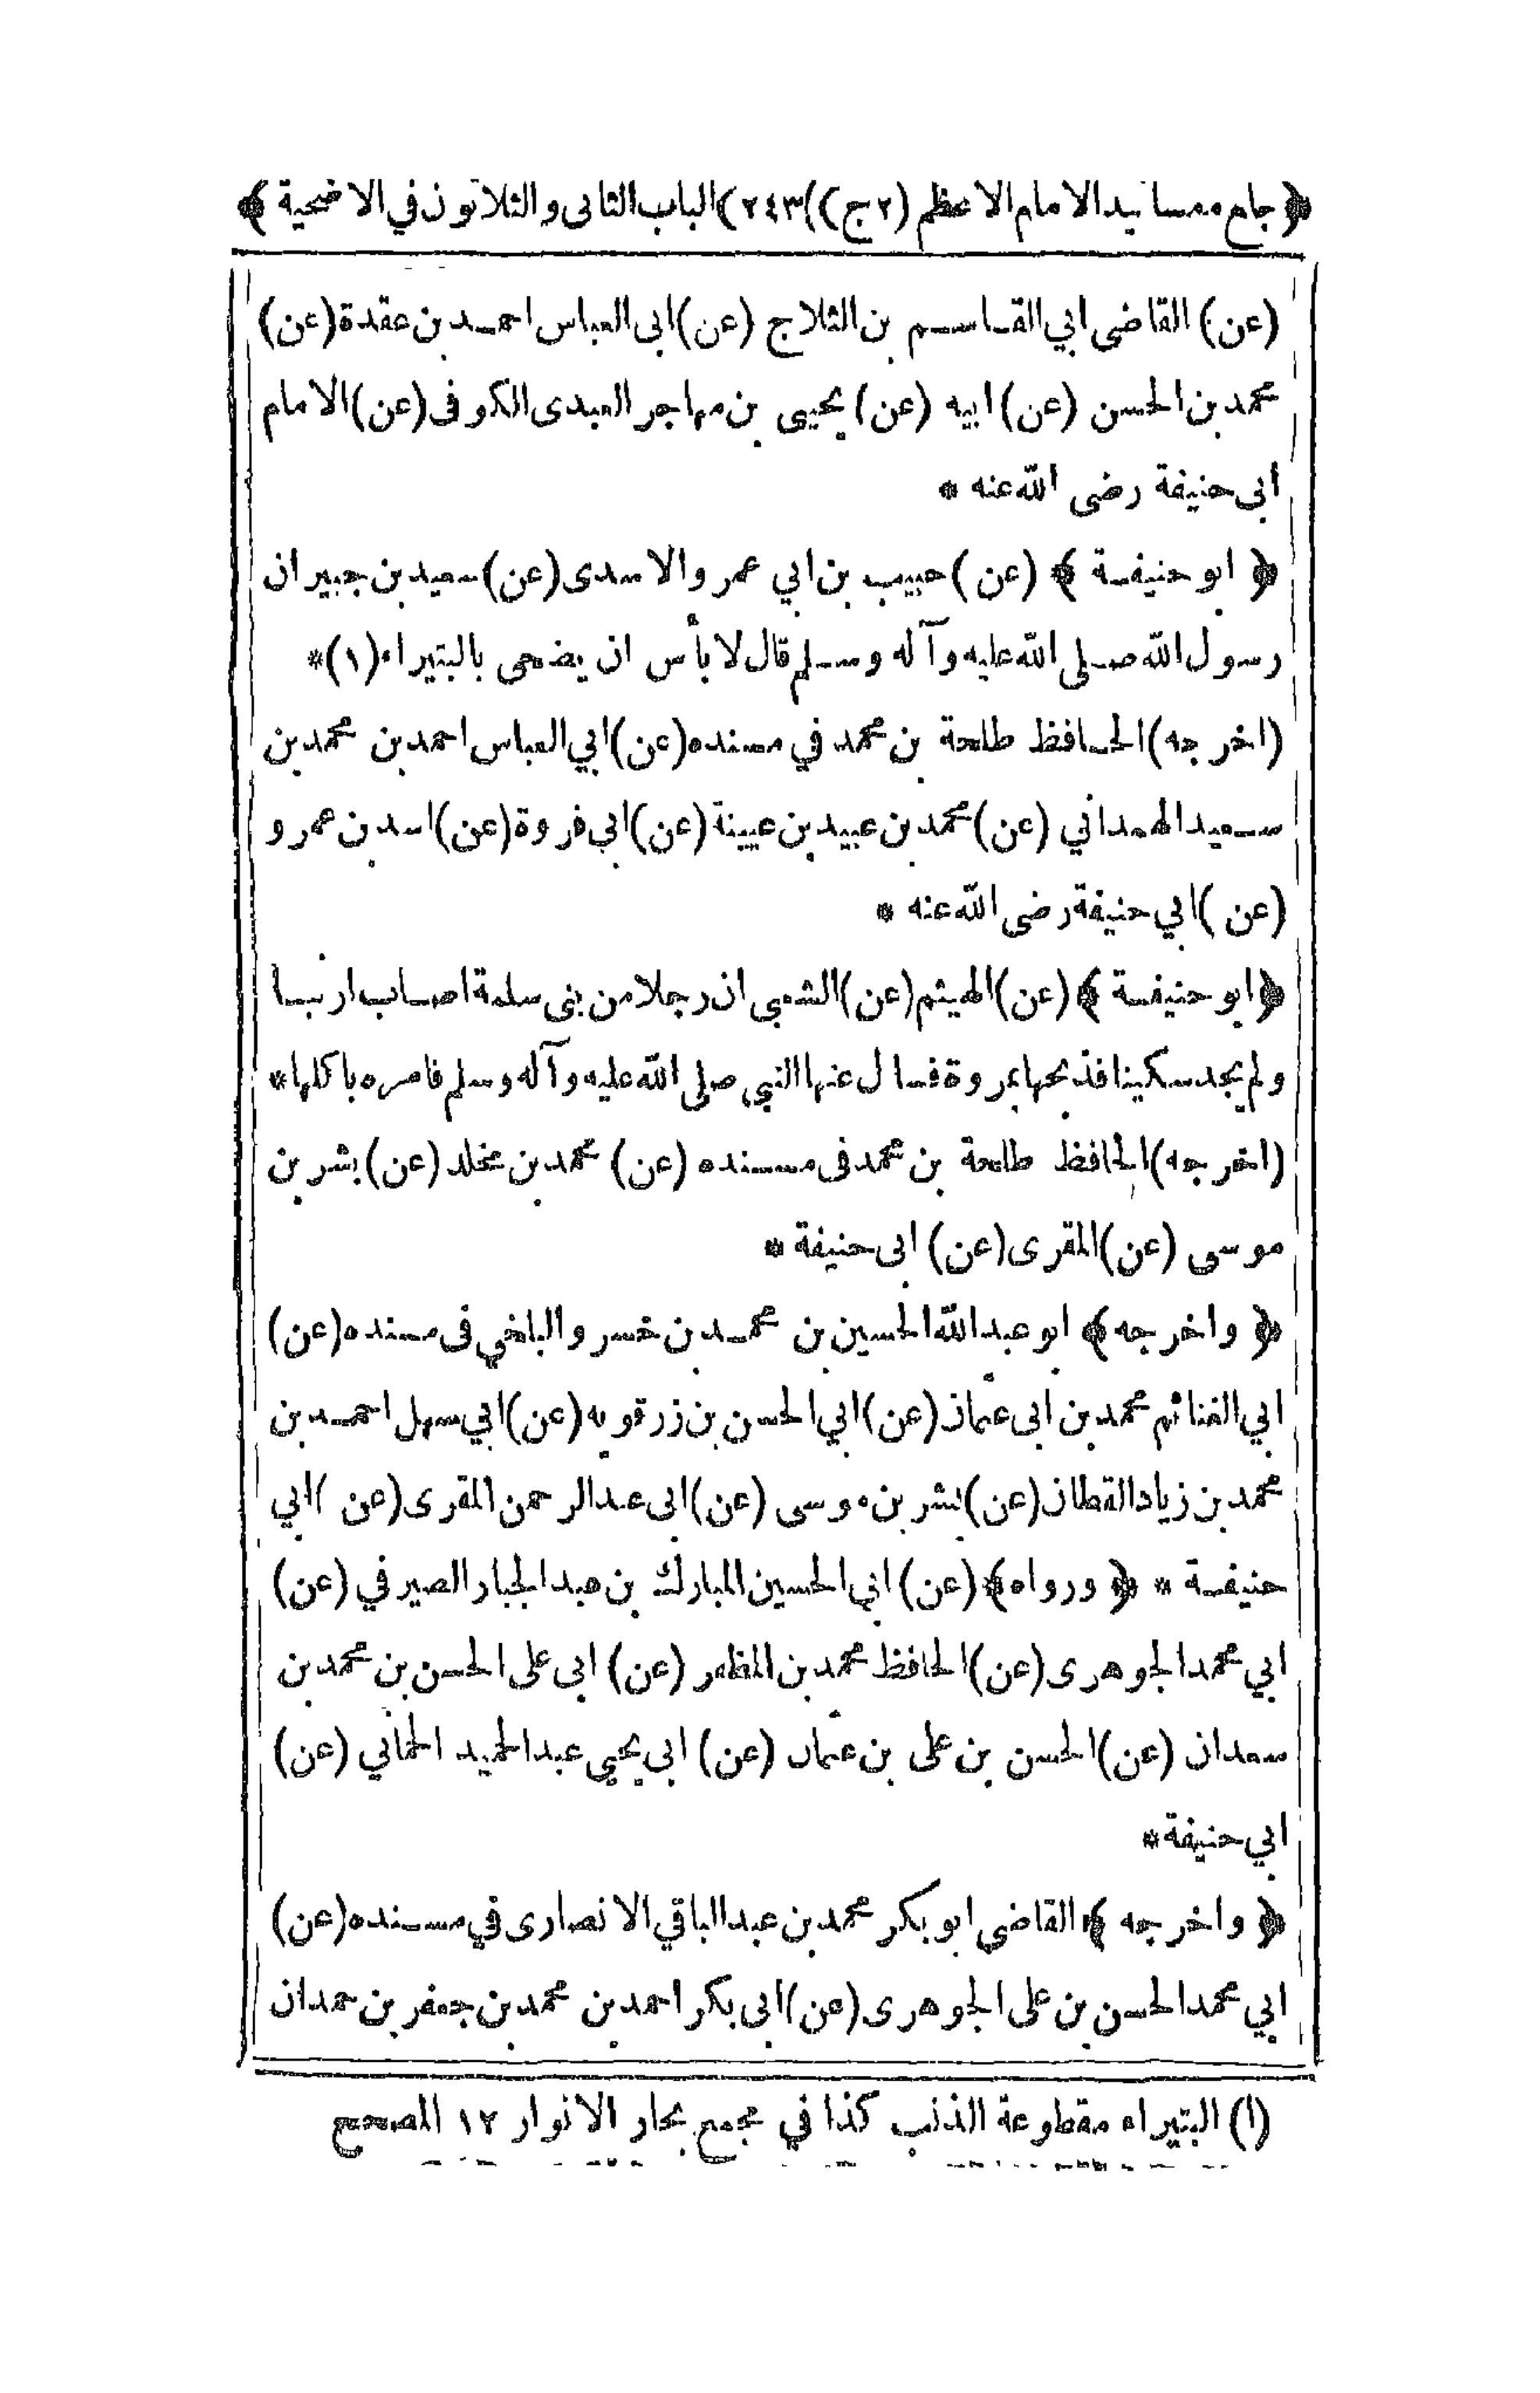 ﴿ جامع مسانيد الامام الاعظم (ج٢) (٢٤٣) الباب الثانى والثلاثون في الاضحية ﴾
(عن) القاضى ابي القاسم بن الثلاج (عن) ابى العباس احمد بن عقدة (عن)
محمد بن الحسن (عن) ابيه (عن) يحيى بن مهاجر العبدى الكوفى (عن) الامام
ابى حنيفة رضى الله عنه *
﴿ ابو حنيفة ﴾ (عن) حبيب بن ابي عمرو الاسدى (عن) سعيد بن جبير ان
رسول الله صلى الله عليه وآله وسلم قال لا بأس ان يضحى بالبتيراء (١) *
(اخرجه) الحافظ طلحة بن محمد في مسنده (عن) ابي العباس احمد بن محمد بن
سعيد الهمداني (عن) محمد بن عبيد بن عيينة (عن) ابي فروة (عن) اسد بن عمرو
(عن) ابي حنيفة رضى الله عنه *
﴿ ابو حنيفة ﴾ (عن) الهيثم (عن) الشعبى ان رجلا من بنى سلمة اصاب ارنبا
ولم يجد سكينا فذبحها بمروة فسال عنها النبي صلى الله عليه وآله وسلم فامره باكلها *
(اخرجه) الحافظ طلحة بن محمد فى مسنده (عن) محمد بن مخلد (عن) بشر بن
موسى (عن) المقرى (عن) ابى حنيفة *
﴿ واخرجه ﴾ ابو عبد الله الحسين بن محمد بن خسرو البلخي فى مسنده (عن)
ابي الغنائم محمد بن ابى عثمان (عن) ابي الحسن بن زرقويه (عن) ابي سهل احمد بن
محمد بن زياد القطان (عن) بشر بن موسى (عن) ابى عبد الرحمن المقرى (عن) ابي
حنيفة * ﴿ ورواه ﴾ (عن) ابي الحسين المبارك بن عبد الجبار الصيرفي (عن)
ابي محمد الجوهرى (عن) الحافظ محمد بن المظفر (عن) ابى على الحسن بن محمد بن
سعدان (عن) الحسن بن على بن عثمان (عن) ابى يحيى عبد الحميد الحماني (عن)
ابي حنيفة *
﴿ واخرجه ﴾ القاضي ابو بكر محمد بن عبد الباقي الانصارى في مسنده (عن)
ابي محمد الحسن بن على الجوهرى (عن) ابى بكر احمد بن محمد بن جعفر بن حمدان
(١) البتيراء مقطوعة الذنب كذا في مجمع بحار الانوار ١٢ المصحح